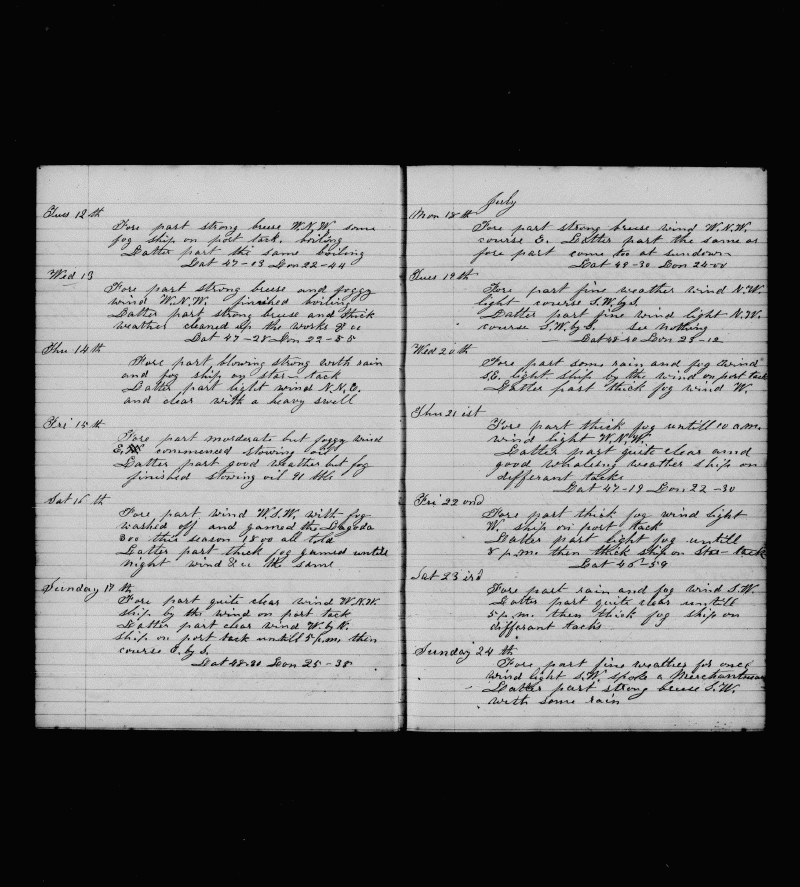 Tues 12 th
Fore part strong breuse W.N.W. some
fog ship on port tack. boiling
Latter part the same boiling
Lat 47-13 Lon 22-44
Wed 13
Fore part strong breuse and foggy
wind W.N.W. finished boiling
Latter part strong breuse and thick
weather cleaned up the works &c
Lat 47-28 Lon 22-55
Thu 14 th
Fore part blowing strong with rain
and fog ship on star-tack
Latter part light wind N.N.E.
and clear with a heavy swell
Fri 15 th
Fore part morderate but foggy wind
E. commenced stowing oil
Latter part good weather but fog
finished stowing oil 91 bbs
Sat 16 th
Fore part wind W.S.W. with fog
washed off and gamed the Lagoda
300 this season 1800 all told
Latter part thick fog gamed untill
night wind &c the same
Sunday 17 th
Fore part quite clear wind W.N.W.
ship by the wind on port tack
Latter part clear wind W. by N.
ship on port tack untill 5 p.m. then
course E. by S.
Lat 48-30 Lon 25-35
July
Mon 18 th
Fore part strong breuse wind W.N.W.
course E. Latter part the same as
fore part came too at sundown
Lat 48-30 Lon 24-00
Tues 19 th
Fore part fine weather wind N.W.
light course S.W. by S.
Latter part fine wind light N.W.
course S.W. by S. see nothing
Lat 48-10 Lon 23-12
Wed 20 th
Fore part some rain and fog wind
S.E. light ship by the wind on port tack
Latter part thick fog wind W.
Thu 21 ist
Fore part thick fog untill 10 a.m.
wind light W.N.W.
Latter part quite clear and
good whaleing weather ship on
differant tacks
Lat 47-19 Lon 22-30
Fri 22 ond
Fore part thick fog wind light
W. ship on port tack
Latter part light fog untill
8 p.m. then thick ship on Star-tack
Lat 46-59
Sat 23 ird
Fore part rain and fog wind S.W.
Latter part quite clear untill
5 p.m. then thick fog ship on
differant tacks
Sunday 24 th
Fore part fine weather for once
wind light S.W. spoke a Merchantman
Latter part strong breuse S.W.
with some rain